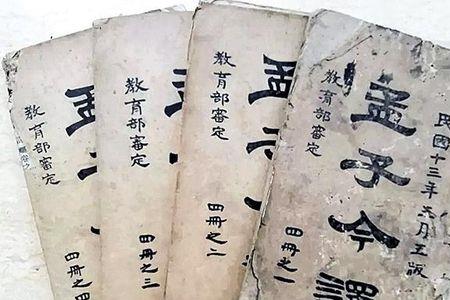 民國十三年六月五版
孟子今譯
教育部審定
四冊之一
孟子
教育部審定
四冊之二
教育部審定
四冊之三
孟子
教育部審定
四冊之